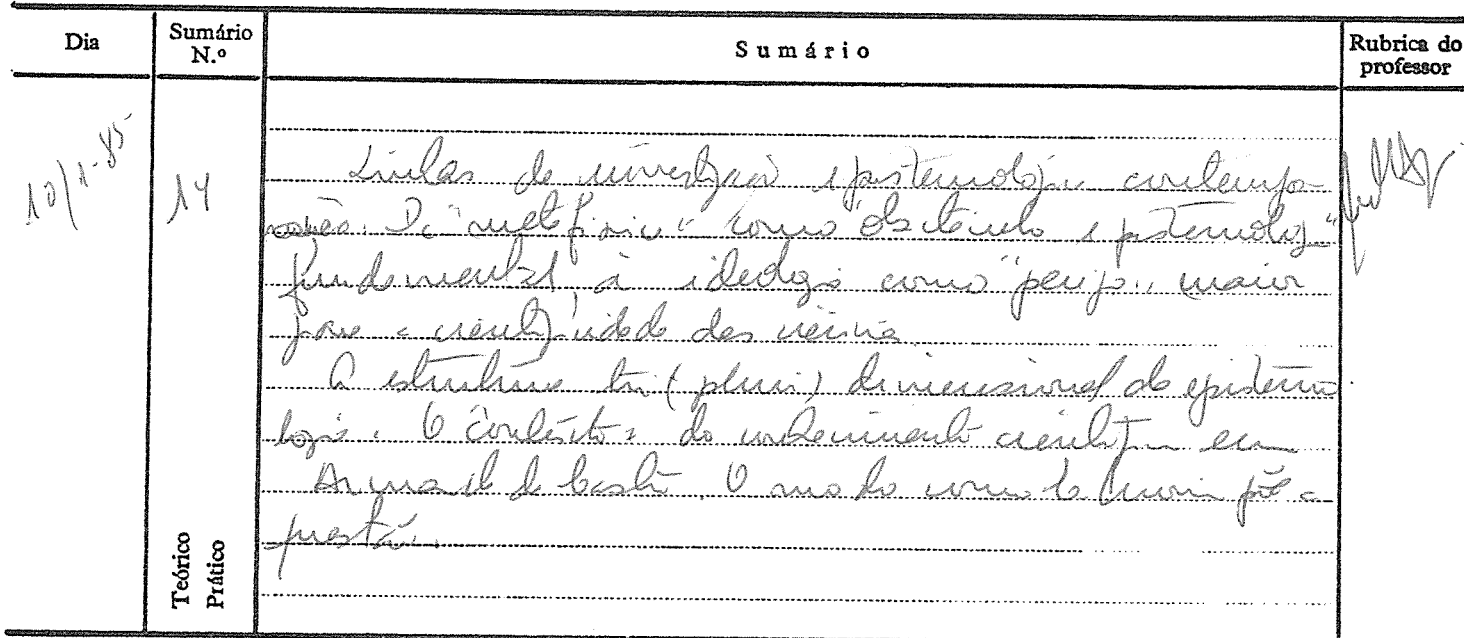 Dia
Sumário N.º
Sumário
Rubrica do professor
10/1-85
14
Linhas de investigação epistemológica contempo-
rânea. Da "metafísica" como "obstáculo epistemológ."
fundamental, à ideologia como "perigo" maior
para a cientificidade das ciências.
A estrutura tri (pluri) dimensional da epistemo
logia. O contexto do conhecimento científico em
Armando de Castro. O modo como põe a
questão.
Teórico
Prático